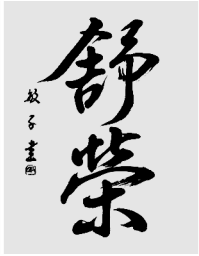 舒榮
敏子書